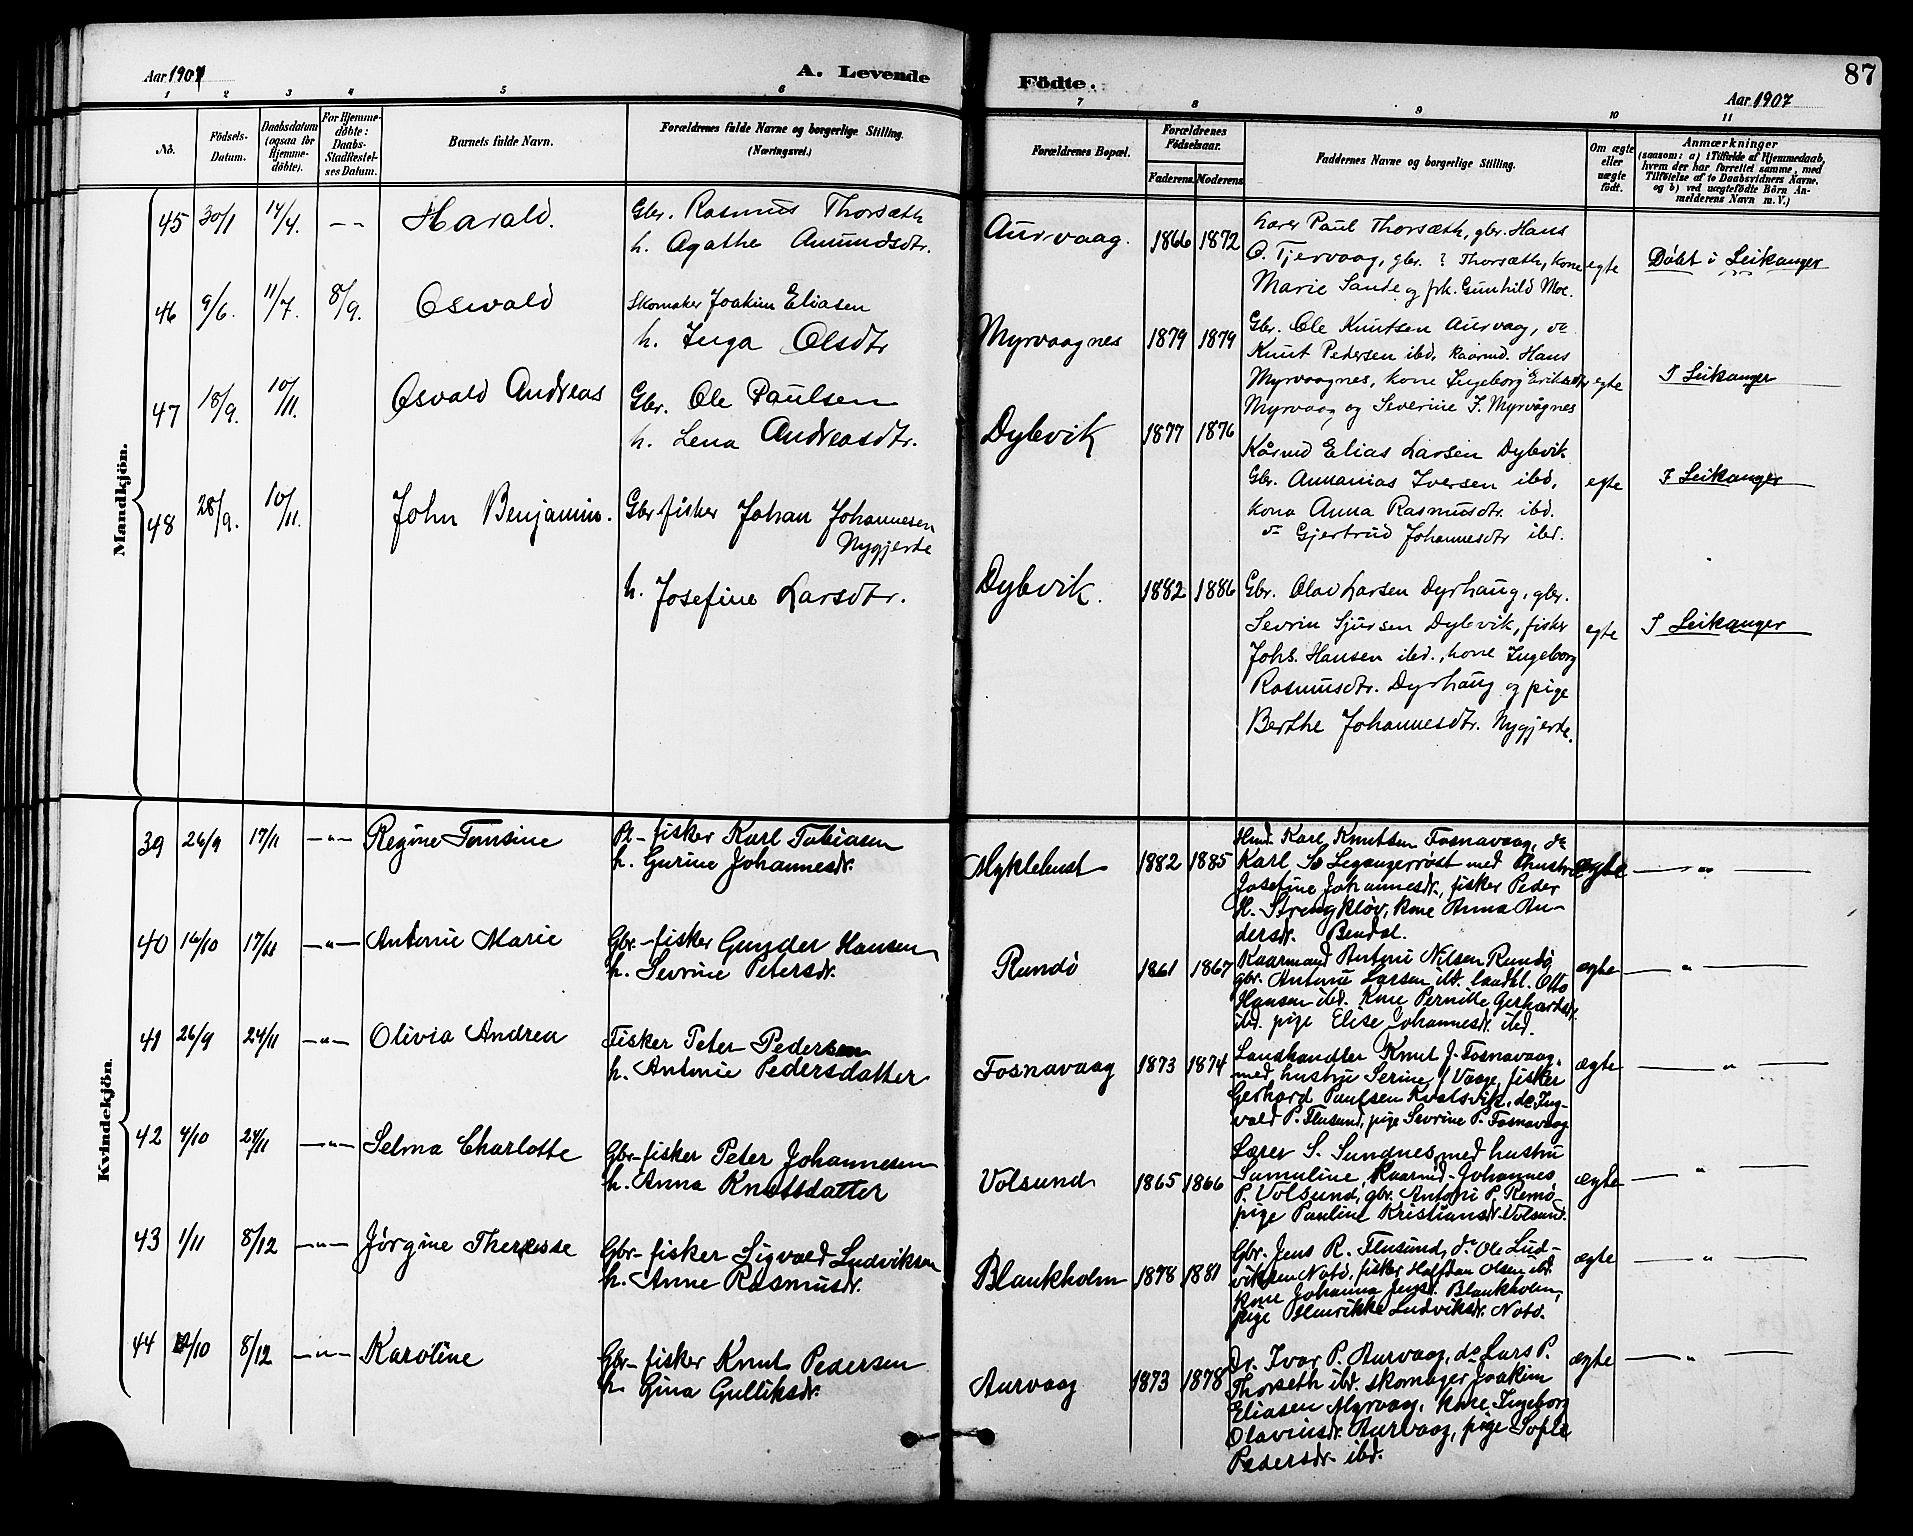 Aar 1907
A. Levende
Födte.
87
Aar 1907
1 2 3 4 5 6 7 8 9 10 11
No.
Födsels-Datum.
Daabsdatum (ogsaa for Hjemme-döbte).
For Hjemme-döbte: Daabs-Stadfæstel-ses Datum.
Barnets fulde Navn.
Forældrenes fulde Navne og borgerlige Stilling. (Næringsvei.)
Forældrenes Bopæl.
Forældrenes Födselsaar.
Faderens Moderens
Faddernes Navne og borgerlige Stilling.
Om ægte eller uægte födt.
Anmærkninger
(saasom: a) i Tilfælde af Hjemmedaab, hvem der har forrettet samme, med Tilföielse af to Daabsvidners Navne, og b) ved uægtefödte Börn An-melderens Navn m. V.)
Mandkjön.
45 30/1 14/4. -- Harald.
Gbr. Rasmus Thorsæth
h. Agathe Amundsdtr.
Aurvaag. 1866 1872
Lærer Paul Thorsæth, gbr. Hans
O. Tjervaag, gbr. ? Thorsæth, kone
Marie Sande og frk. Gunhild Moe.
egte
Döbt i Leikanger
46 9/6. 11/7. 8/9. Oswald
Skomaker Joakim Eliasen
h. Inga Olsdtr
Myrvaagnes 1879 1879
Gbr. Ole Knutsen Aurvaag, do
Knut Pedersen ibd. kaarmd. Hans
Myrvaagnes, kone Ingeborg Eriksdtr,
Myrvaag og Severine J. Myrvågnes
egte
I Leikanger
47 18/9. 10/11. Osvald Andreas
Gbr. Ole Paulsen
h. Lena Andreasdtr.
Dybvik 1877 1876
Kårmd Elias Larsen Dybvik
Gbr. Annanias Iversen ibd,
kona Anna Rasmusdtr ibd.
do Gjertrud Johannesdtr ibd.
egte
I Leikanger
48 28/9. 10/11. John Benjamin.
Gbr fisker Johan Johannesen
Nygjerde
h. Josefine Larsdtr.
Dybvik. 1882 1886
Gbr. Olav Larsen Dyrhaug, gbr.
Sevrin Sjursen Dybvik, fisker
Johs. Hansen ibd., kone Ingeborg
Rasmusdtr. Dyrhaug og pige
Berthe Johannesdtr. Nygjerde.
egte
I Leikanger
Kvindekjön.
39 26/9 17/11 -"- Regine Tomsine
Pl- fisker Karl Tobiasen
h. Gurine Johannesdr.
Myklebust 1882 1885
Hmd. Karl Knutsen Fosnavaag, do
Karl S. Leganger med hustru
Josefine Johannesdr, fisker Peder
H. Strengkløv, kone Anna An-
dersdr.
ægte
— " —
40 16/10 17/11 -"- Antonie Marie
Gbr.-fisker Gunder Hansen
h. Sevrine Petersdr.
Rundö 1861 1867
Kaarmand Antoni Nilsen Rundö
gbr. Antoni Larsen ibd. landhl. Otto
Hansen ibd. kone Pernille Gerhardsdr.
ibd. pige Elise Johannesdr. ibd.
ægte
— " —
41 26/9 24/11 -"- Olivia Andrea
Fisker Peter Pedersen
h. Antonie Pedersdatter
Fosnavaag 1873 1874
Landhandler Knut J. Fosnavaag,
med hustru Serine Vaage, fisker
Gerhard Paulsen Kvalsvik, do Ing-
vald P. Flusund, pige Sevrine P. Fosnavaag
ægte
— " —
42 4/10 24/11 -"- Selma Charlotte
Gbr-fisker Peter Johannesen
h. Anna Knutsdatter
Volsund 1865 1866
Lærer S. Sundnes med hustru
Samuline, Kaarmd. Johannes
P. Volsund, gbr. Antoni P. Remö
pige Pauline Kristiansdr. Volsund.
ægte
— " —
43 1/11 8/12 -"- Jørgine Therese
Gbr-fisker Sigvald Ludviksen
h. Anne Rasmusdr.
Blankholm 1878 1881
Gbr. Jens R. Flusund, do Ole Lud-
viksen Notö, fisker Halfdan Olsen ibd
kone Johanna Jensdr. Blankholm,
pige Henrikke Ludviksdr. Notö.
ægte
— " —
44 /10 8/12 -"- Karoline
Gbr-fisker Knut Pedersen
h. Gina Gulliksdr.
Aurvaag 1873 1878
Ivar P. Aurvaag, do Lars P.
Thorseth ibd. skomager Joakim
Eliasen Myrvaag, kone Ingeborg
Olavinsdr. Aurvaag, pige Sofie
Pedersdr ibd.
ægte
— " —